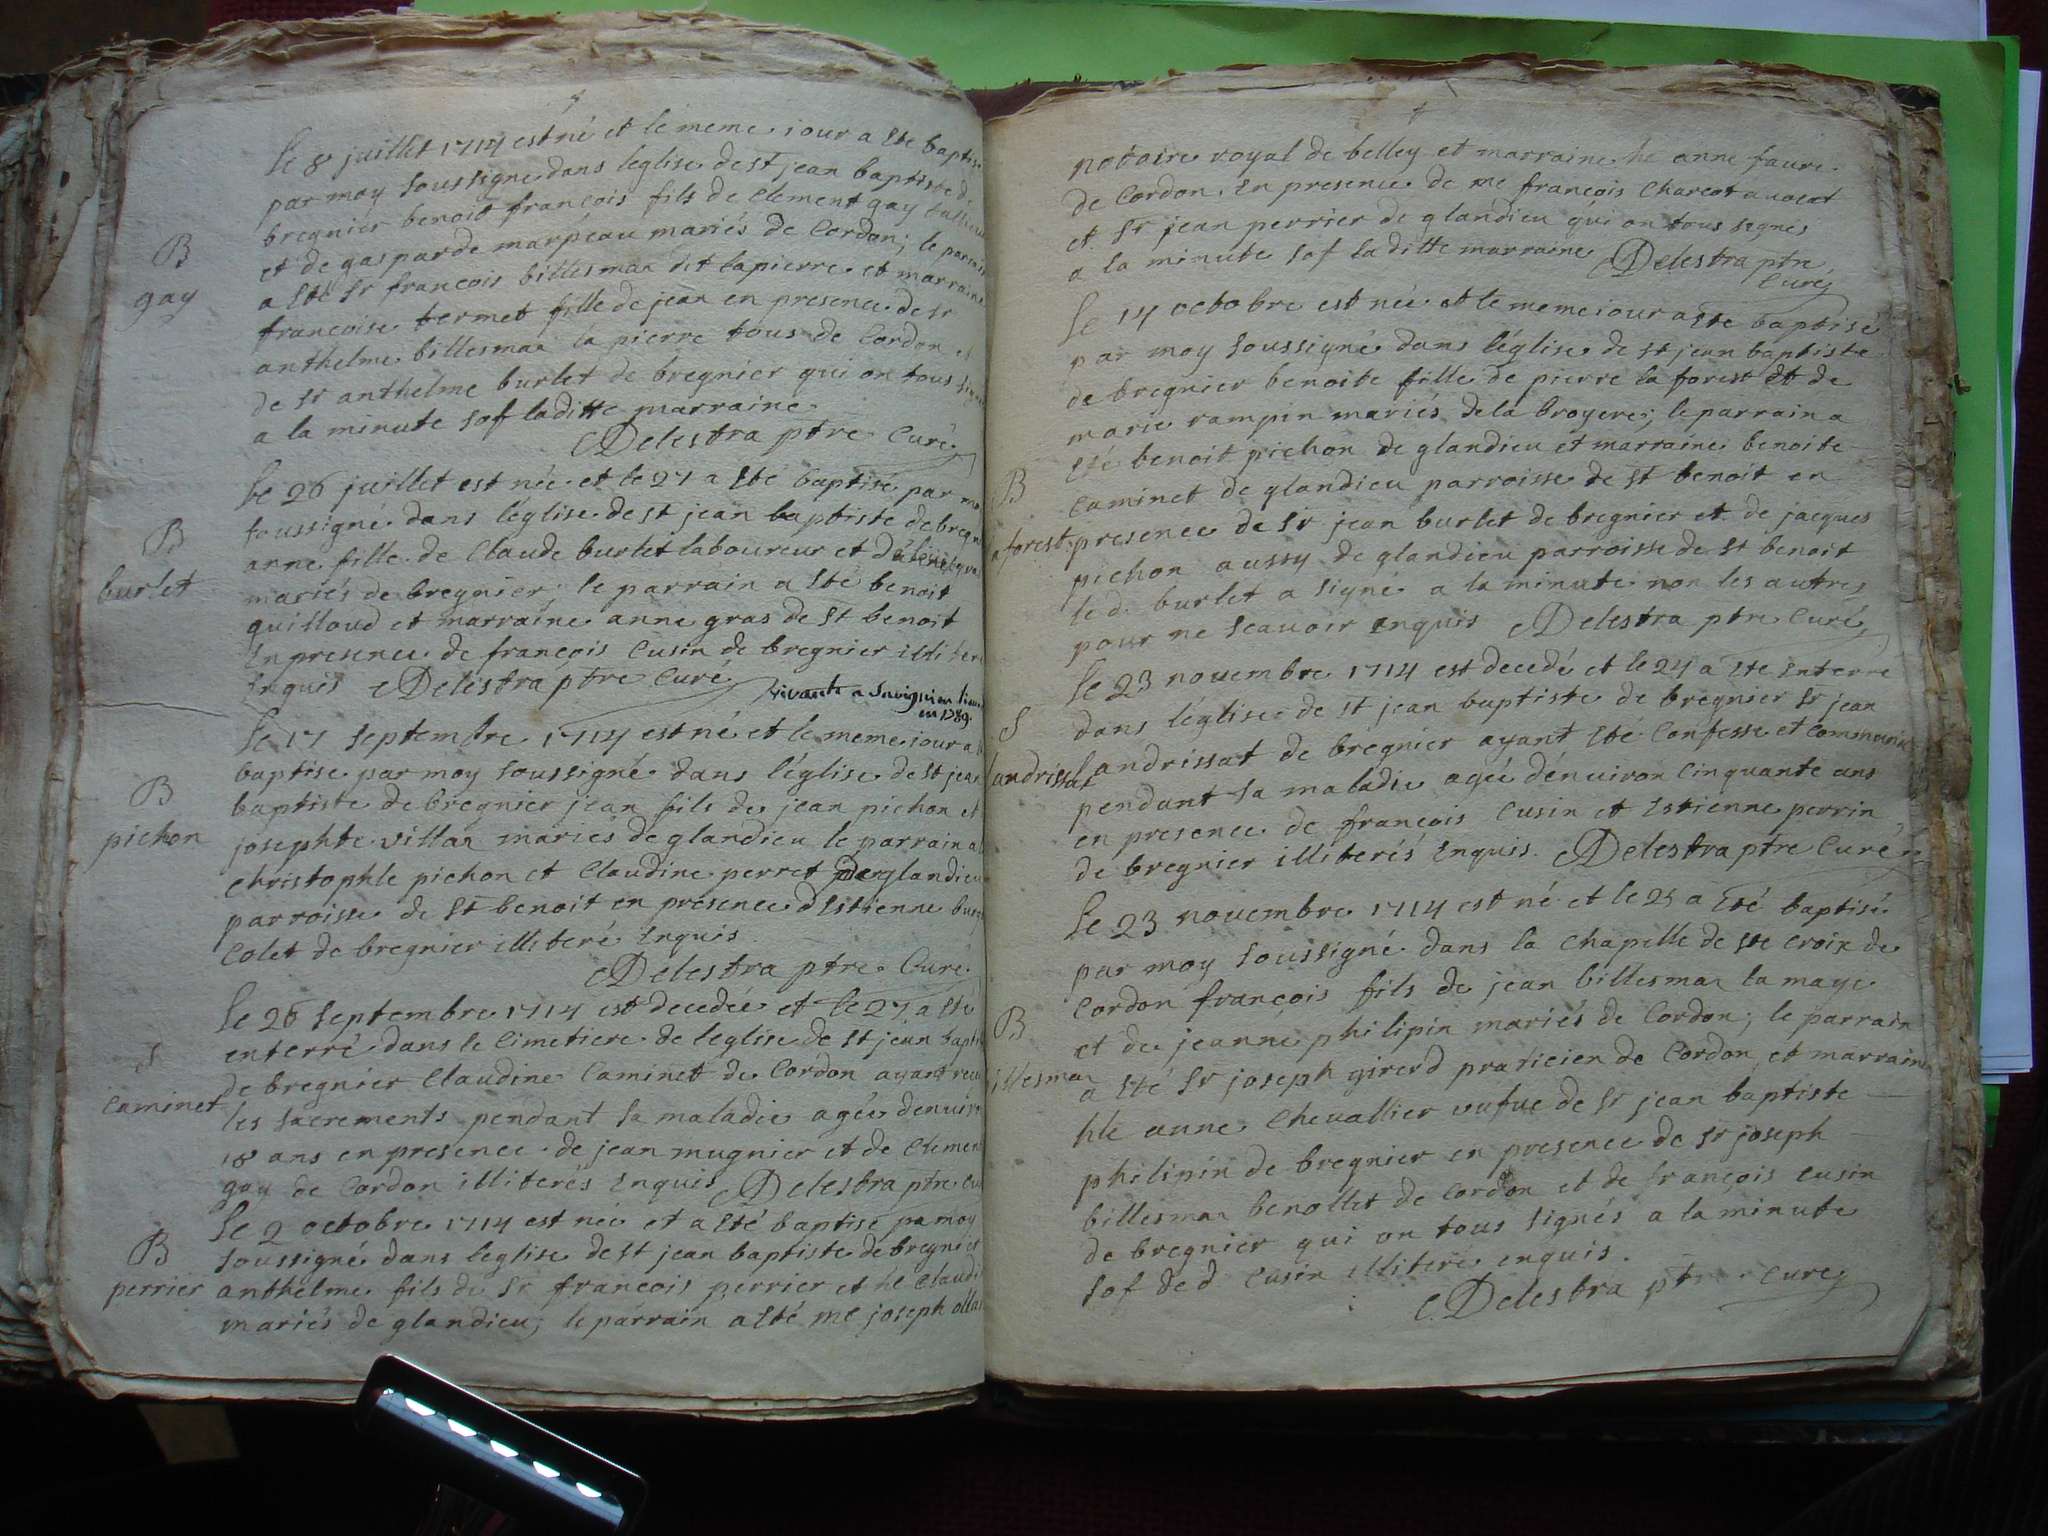 le 8 juillet 1714 est né et le meme iour a ste baptisé
par moy soussigné dans leglise de st jean baptiste de
bregnier benoit françois fils de Clement gay
et de gasparde marpeau mariés de Cordon; le parrain
B
gay
a sté sr francois billesmaz dit lapierre et marraine
francoise termet fille de jean en presence de sr
anthelme billesmaz la pierre tous de Cordon et
de sr anthelme burlet de bregnier qui on tous signés
a la minute sof laditte marraine
Delestra ptre Curé
le 26 juillet est née et le 27 a sté baptisé par moy
B
burlet
soussigné dans leglise de st jean baptiste de bregnier
anne fille de Claude burlet laboureur et
mariés de bregnier; le parrain a sté benoit
guilloud et marraine anne gras de st benoit
En presence de françois Cusin de bregnier
Enquis Delestra ptre Curé
vivante a en 1789.
le 17 septembre 1714 est né et le meme iour a
baptise par moy soussigné dans léglise de st jean
B
pichon
baptiste de bregnier jean fils de jean pichon et
josephte villaz mariés de glandieu le parrain a
Christophle pichon et Claudine perret de glandieu
parroisse de st benoit en presence dEstienne
Colet de bregnier illiteré Enquis
Delestra ptre Curé
le 26 septembre 1714 est decedée et le 27 a sté
enterré dans le Cimetiere de leglise de st jean bapt
S
Caminet
de bregnier Claudine Caminet de Cordon ayant receu
les sacrements pendant sa maladie agée denuiron
18 ans en presence de jean mugnier et de Clement
gay de Cordon illiterés Enquis Delestra ptre Cu
le 2 octobre 1714 est née et a sté baptise pa moy
B
perrier
soussigné dans leglise de st jean baptiste de bregnier
anthelme fils de sr françois perrier et he Claudi
mariés de glandieu; le parrain a sté me joseph
notaire royal de belley et marraine he anne faure
de Cordon En presence de me françois Charcot auocat
et sr jean perrier de glandieu qui on tous segnés
a la minute sof laditte marraine Delestra ptre
Curé
le 14 octobre est née et le meme iour a ste baptisé
par moy soussigné dans léglise de st jean baptiste
de bregnier benoite fille de pierre la forest et de
marie rampin mariés de la broyere; le parrain a
sté benoit pichon de glandieu et marraine benoite
B
aforest
Caminet de glandieu parroisse de st benoit en
presence de sr jean burlet de bregnier et de jacques
pichon aussy de glandieu parroisse de st benoit
le d. burlet a signé a la minute non les autres
pour ne scauoir Enquis Delestra ptre Curé
le 23 novembre 1714 est decedé et le 24 a sté Enterré
S
landrissat
dans léglise de st jean baptiste de bregnier sr jean
landrissat de bregnier ayant sté Confesse et Communie
pendant sa maladie agée dénuiron Cinquante ans
en presence de françois Cusin et Estienne perrin
de bregnier illiterés Enquis. Delestra ptre Curé
le 23 nouembre 1714 est né et le 25 a sté baptisé
par moy soussigné dans la Chapelle de ste Croix de
Cordon françois fils de jean billesmaz la maye
B
illesmaz
et de jeanne philipin mariés de Cordon; le parrain
a sté sr joseph girerd praticien de Cordon et marraine
hle anne Chevallier vefue de sr jean baptiste
philipin de bregnier en presence de sr joseph
billesmaz benollet de Cordon et de françois Cusin
de bregnier qui on tous signés a la minute
sof le d Cusin illitere enquis.
Delestra ptre Curé